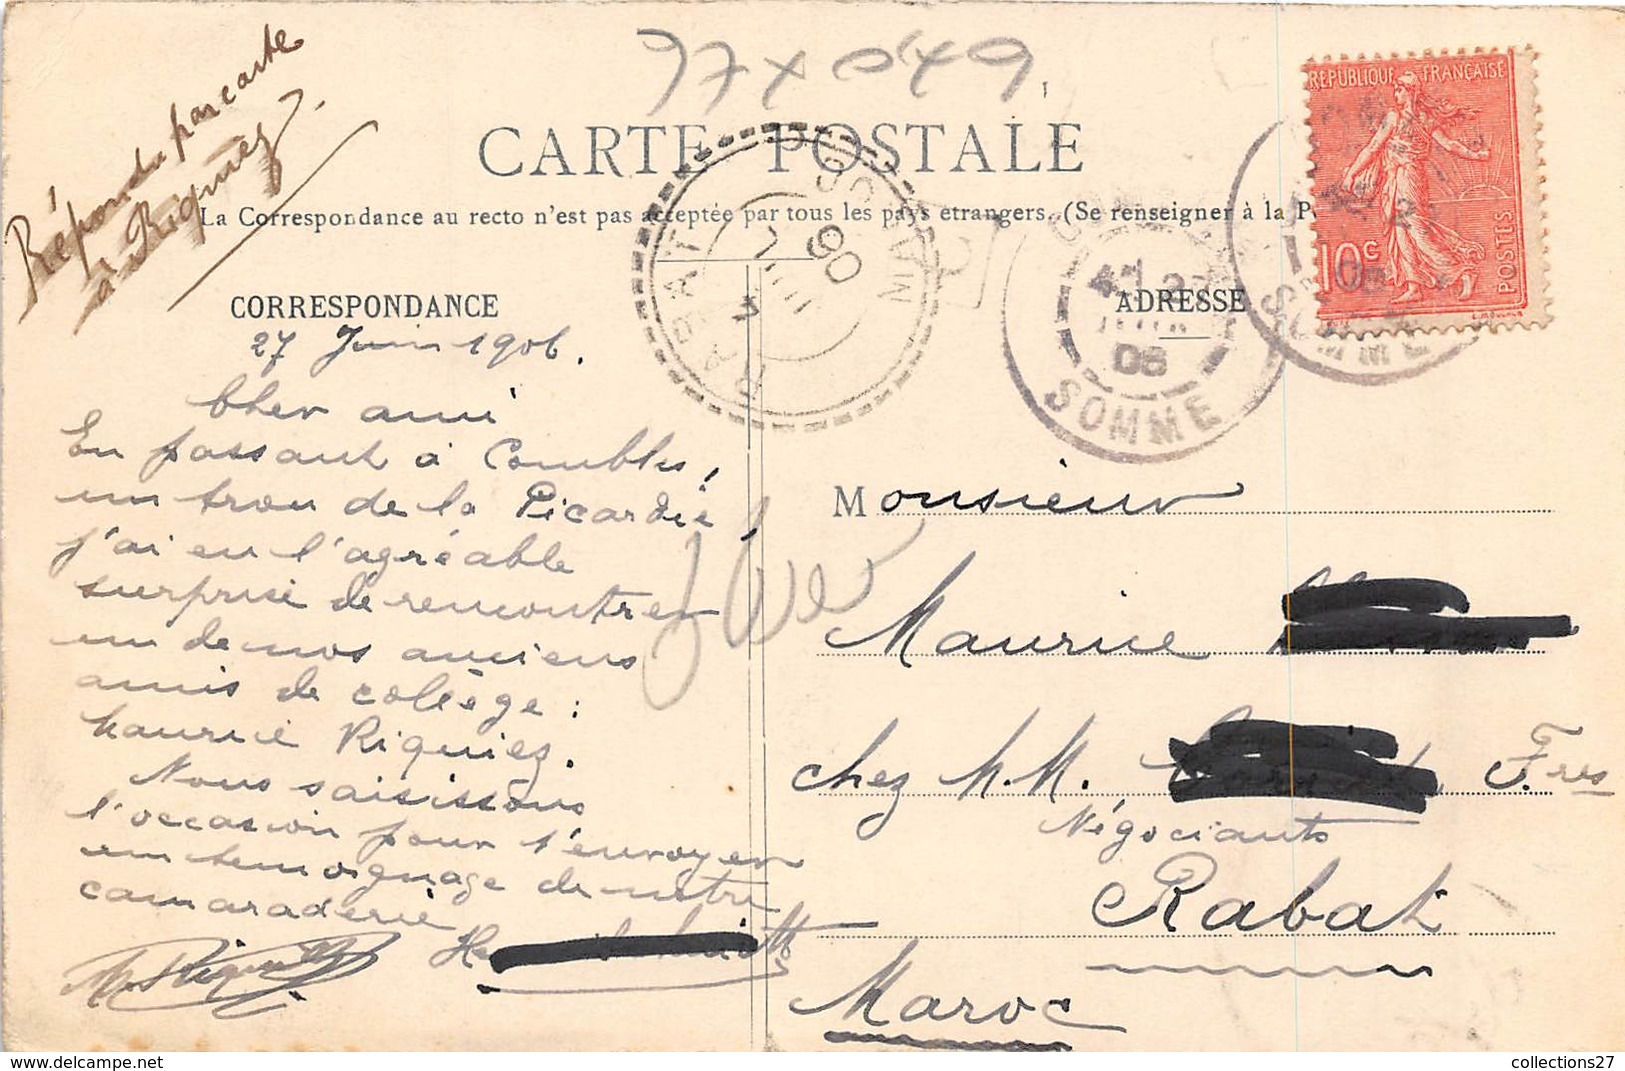 Répondu par carte
à Riquiez
CARTE POSTALE
La Correspondance au recto n'est pas acceptée par tous les pays etrangers. (Se renseigner à la
CORRESPONDANCE
ADRESSE
REPUBLIQUE FRANÇAISE
10c
POSTES
RABAT
JUIL
06
SOMME
06
27 Juin 1906.
Cher ami
En passant à Combles,
un trou de la Picardie,
j'ai eu l'agréable
surprise de rencontrer
un de nos anciens
amis de collège :
Maurice Riquiez.
Nous saisissons
l'occasion pour t'envoyer
un temoignage de notre
camaraderie
Monsieur
Maurice
chez M.M. Fres
Négociants
Rabat
Maroc
collections27